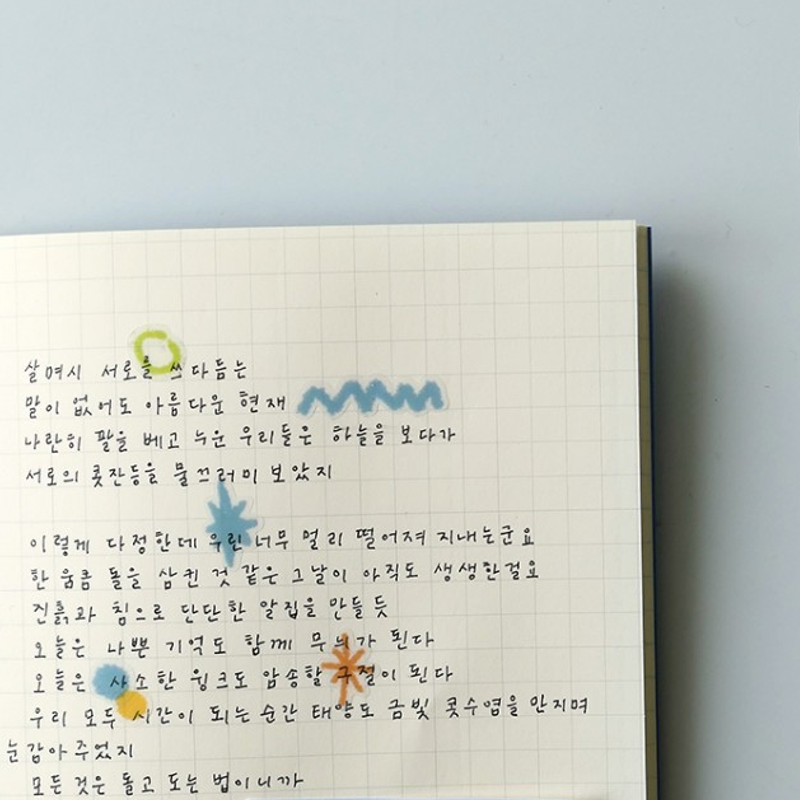 살며시 서로를 쓰다듬는
말이 없어도 아름다운 현재
나란히 팔을 베고 누운 우리들은 하늘을 보다가
서로의 콧잔등을 물끄러미 보았지
이렇게 다정한데 우린 너무 멀리 떨어져 지내는군요
한 움큼 돌을 삼킨 것 같은 그날이 아직도 생생한걸요
진흙과 침으로 단단한 알집을 만들듯
오늘은 나쁜 기억도 함께 무늬가 된다
오늘은 사소한 윙크도 암송할 구절이 된다
우리 모두 시간이 되는 순간 태양도 금빛 콧수염을 만지며
눈감아 주었지
모든 것은 돌고 도는 법이니까